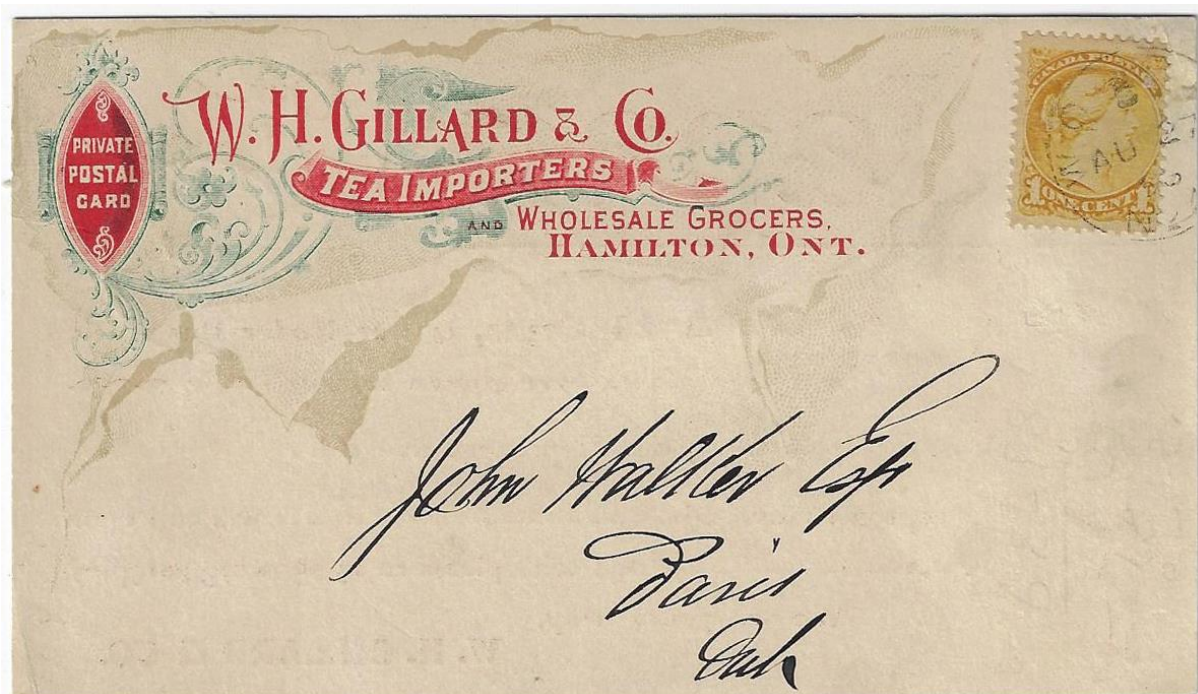 PRIVATE
POSTAL
CARD
W. H. GILLARD & CO.
TEA IMPORTERS
AND WHOLESALE GROCERS,
HAMILTON, ONT.
CANADA POSTAGE
1 ONE CENT 1
AU
John Walker Esq
Paris
Ont
W. H. GILLARD & CO